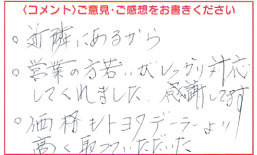 〈コメント〉ご意見・ご感想をお書きください
○近隣にあるから
○営業の方若いがしっかり対応
してくれました。感謝してます
○価格もトヨタデーラーより
高く取っていただいた